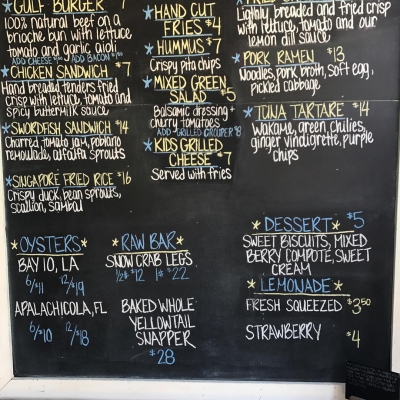 *GULF BURGER 7
100% natural beef on a
brioche bun with lettuce
tomato and garlic aioli
ADD CHEESE ADD BACON
*CHICKEN SANDWICH $7
Hand breaded tenders fried
crisp with lettuce, tomato and
spicy buttermilk sauce
*SWORDFISH SANDWICH $14
Charred tomato jam, poblano
remoulade, alfalfa sprouts
*SINGAPORE FRIED RICE $16
Crispy duck, bean sprouts,
scallion, sambal
*HAND CUT
FRIES $4
*HUMMUS $7
Crispy pita chips
*MIXED GREEN
SALAD $5
Balsamic dressing +
cherry tomatoes
ADD GRILLED GROUPER $8
*KIDS GRILLED
CHEESE $7
Served with fries
Lightly breaded and fried crisp
with lettuce, tomato and our
lemon dill sauce
*PORK RAMEN $13
Noodles, pork broth, soft egg,
pickled cabbage
*TUNA TARTARE $14
Wakame, green chilies,
ginger vindigrette, purple
chips
*OYSTERS*
BAY 10, LA
6/$11 12/$19
APALACHICOLA, FL
6/$10 12/$18
*RAW BAR*
SNOW CRAB LEGS
1/2# $12 1# $22
BAKED WHOLE
YELLOWTAIL
SNAPPER
$28
*DESSERT* $5
SWEET BISCUITS, MIXED
BERRY COMPOTE, SWEET
CREAM
*LEMONADE*
FRESH SQUEEZED $3.50
STRAWBERRY $4